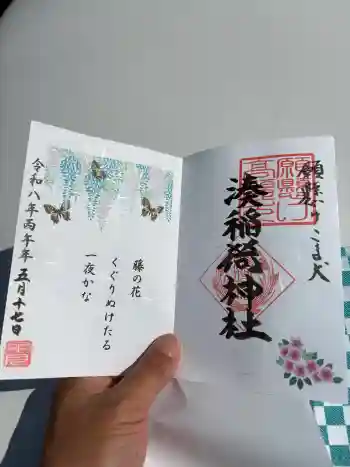 願懸け
高麗犬
願懸けこま犬
湊稲荷神社
藤の花
くぐりぬけたる
一夜かな
令和八年丙午年 五月十七日